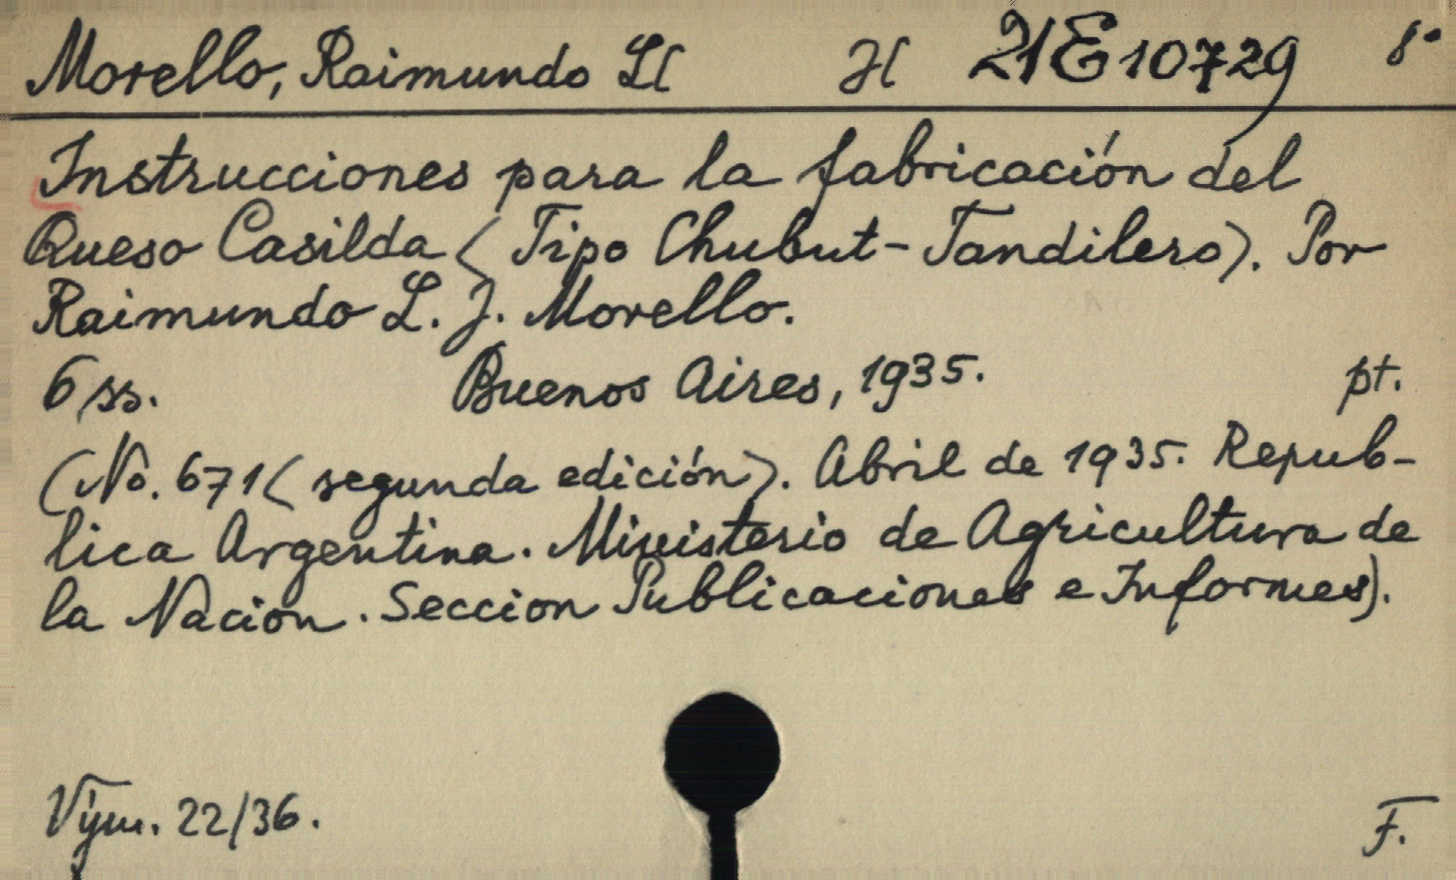 Morello, Raimundo L( H 21E10729 8°
Instrucciones para la fabricación del
Queso Casilda (Tipo Chubut-Tandilero). Por
Raimundo L. J. Morello.
6 ss. Buenos Aires, 1935. pt.
(No. 671 (segunda edición). Abril de 1935. Repub-
lica Argentina. Ministerio de Agricultura de
la Nacion. Seccion Publicaciones e Informes).
Vým. 22/36. F.